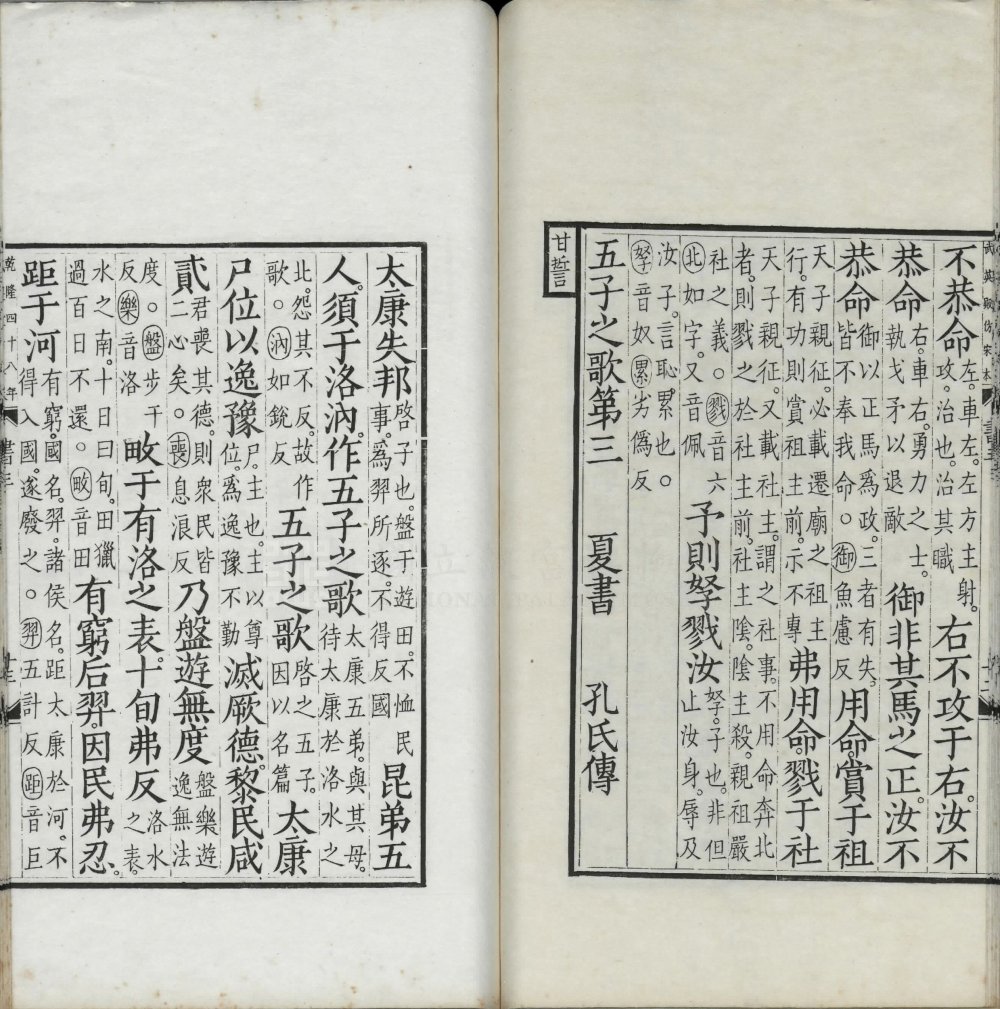 武英殿仿宋本
不恭命左。車左。左方主射。攻。治也。治其職右不攻于右。汝不
恭命右。車右。勇力之士。執戈矛以退敵御非其馬之正。汝不
恭命御以正馬爲政。三者有失。皆不奉我命。○御魚慮反用命。賞于祖
天子親征。必載遷廟之祖主行。有功則賞祖主前。示不專弗用命。戮于社
天子親征。又載社主。謂之社事。不用命奔北者。則戮之於社主前。社主陰。陰主殺。親祖嚴
社之義。○戮音六北如字。又音佩予則孥戮汝孥。子也。非但止汝身。辱及
汝子。言恥累也。○孥音奴累劣僞反
五子之歌第三 夏書 孔氏傳
甘誓
太康失邦啓子也。盤于遊田。不恤民事。爲羿所逐。不得反國昆弟五
人。須于洛汭。作五子之歌太康五弟。與其母。待太康於洛水之
北。怨其不反。故作歌。○汭如銳反五子之歌啓之五子。因以名篇太康
尸位以逸豫尸。主也。主以尊位。爲逸豫不勤滅厥德。黎民咸
貳君喪其德。則衆民皆二心矣。○喪息浪反乃盤遊無度盤樂遊逸無法
度。○盤步干反樂音洛畋于有洛之表。十旬弗反洛水之表。
水之南。十日曰旬。田獵過百日不還。○畋音田有窮后羿。因民弗忍。
距于河有窮。國名。羿。諸侯名。距太康於河。不得入國。遂廢之。○羿五計反距音巨
乾隆四十八年